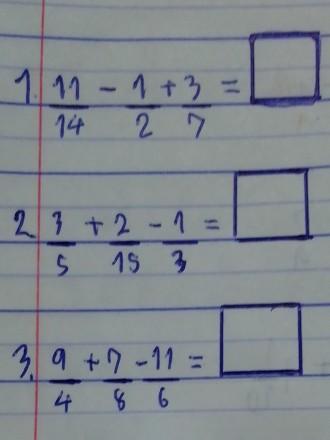 1. 11/14 - 1/2 + 3/7 =
2. 3/5 + 2/15 - 1/3 =
3. 9/4 + 7/8 - 11/6 =